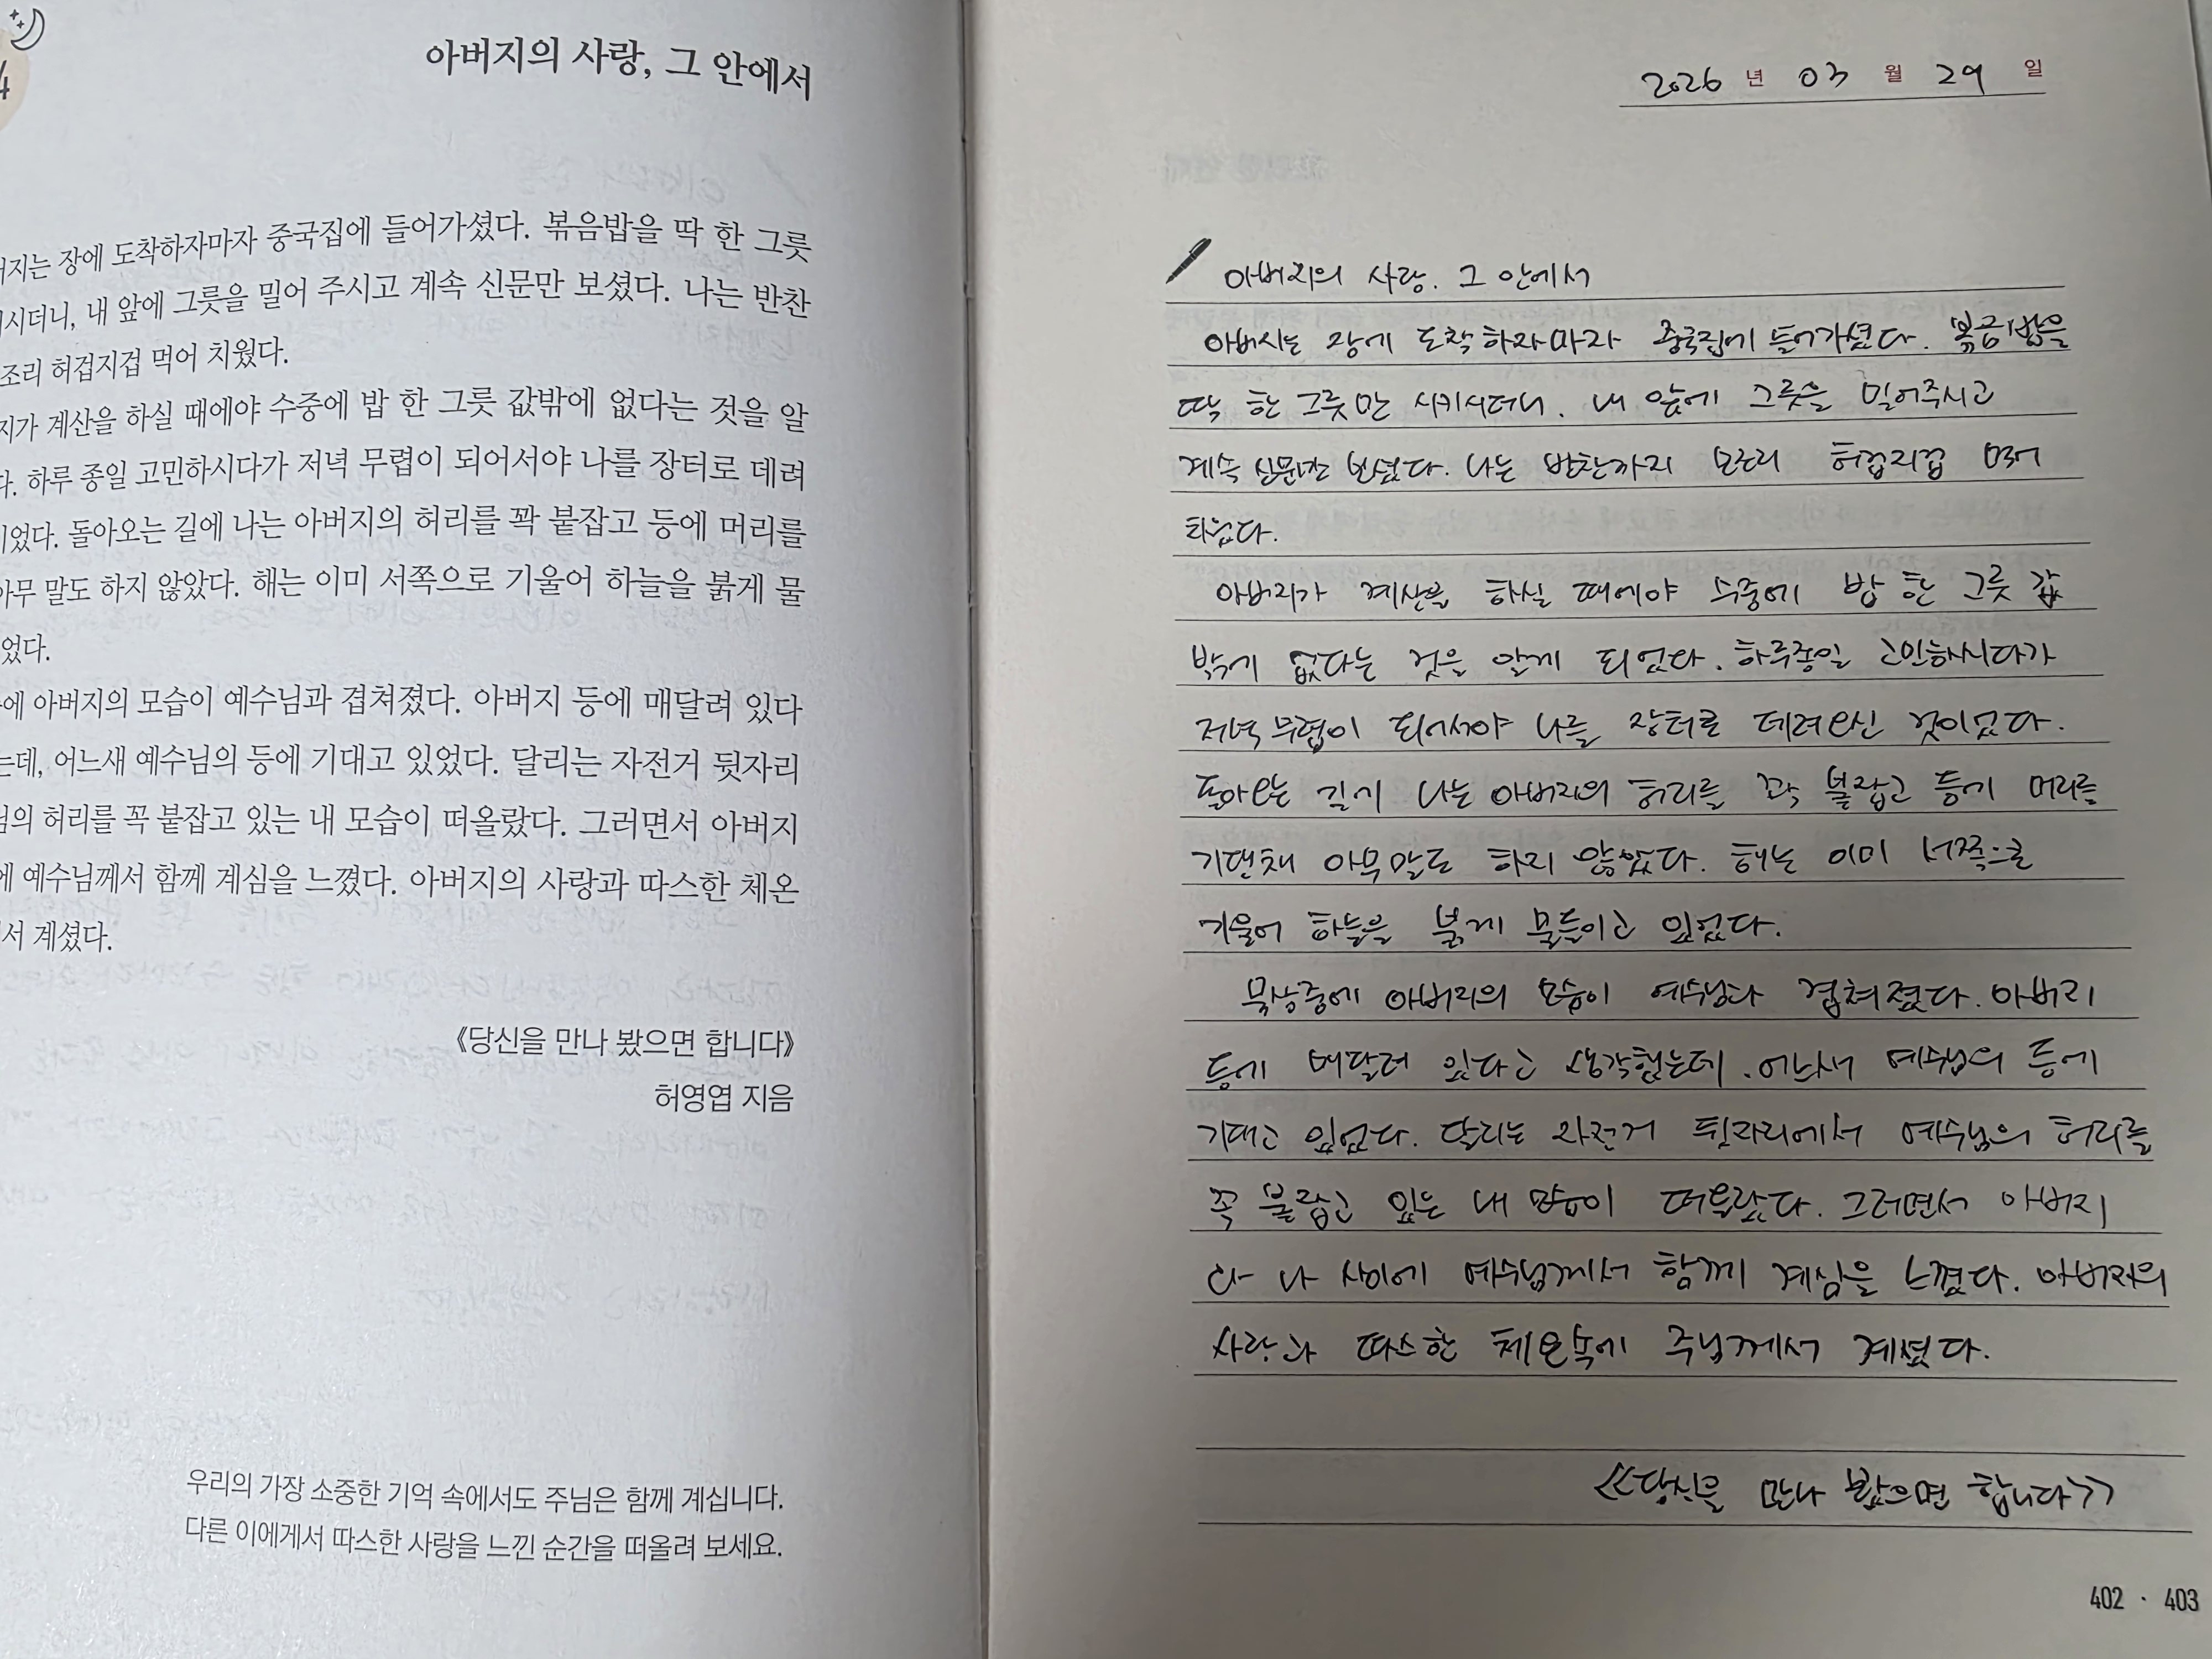 4
아버지의 사랑, 그 안에서
버지는 장에 도착하자마자 중국집에 들어가셨다. 볶음밥을 딱 한 그릇
시더니, 내 앞에 그릇을 밀어 주시고 계속 신문만 보셨다. 나는 반찬
조리 허겁지겁 먹어 치웠다.
지가 계산을 하실 때에야 수중에 밥 한 그릇 값밖에 없다는 것을 알
다. 하루 종일 고민하시다가 저녁 무렵이 되어서야 나를 장터로 데려
이었다. 돌아오는 길에 나는 아버지의 허리를 꽉 붙잡고 등에 머리를
아무 말도 하지 않았다. 해는 이미 서쪽으로 기울어 하늘을 붉게 물
었다.
에 아버지의 모습이 예수님과 겹쳐졌다. 아버지 등에 매달려 있다
는데, 어느새 예수님의 등에 기대고 있었다. 달리는 자전거 뒷자리
님의 허리를 꼭 붙잡고 있는 내 모습이 떠올랐다. 그러면서 아버지
에 예수님께서 함께 계심을 느꼈다. 아버지의 사랑과 따스한 체온
서 계셨다.
《당신을 만나 봤으면 합니다》
허영엽 지음
우리의 가장 소중한 기억 속에서도 주님은 함께 계십니다.
다른 이에게서 따스한 사랑을 느낀 순간을 떠올려 보세요.
2026 년 03 월 29 일
아버지의 사랑. 그 안에서
아버지는 장에 도착하자마자 중국집에 들어가셨다. 볶음밥을
딱 한 그릇만 시키시더니, 내 앞에 그릇을 밀어주시고
계속 신문만 보셨다. 나는 반찬까지 모조리 허겁지겁 먹어
치웠다.
아버지가 계산을 하실 때에야 수중에 밥 한 그릇 값
밖에 없다는 것을 알게 되었다. 하루종일 고민하시다가
저녁 무렵이 되어서야 나를 장터로 데려오신 것이었다.
돌아오는 길에 나는 아버지의 허리를 꽉 붙잡고 등에 머리를
기댄채 아무말도 하지 않았다. 해는 이미 서쪽으로
기울어 하늘을 붉게 물들이고 있었다.
묵상중에 아버지의 모습이 예수님과 겹쳐졌다. 아버지
등에 매달려 있다고 생각했는데, 어느새 예수님의 등에
기대고 있었다. 달리는 자전거 뒷자리에서 예수님의 허리를
꼭 붙잡고 있는 내 모습이 떠올랐다. 그러면서 아버지
와 나 사이에 예수님께서 함께 계심을 느꼈다. 아버지의
사랑과 따스한 체온속에 주님께서 계셨다.
《당신을 만나 봤으면 합니다》
402 · 403